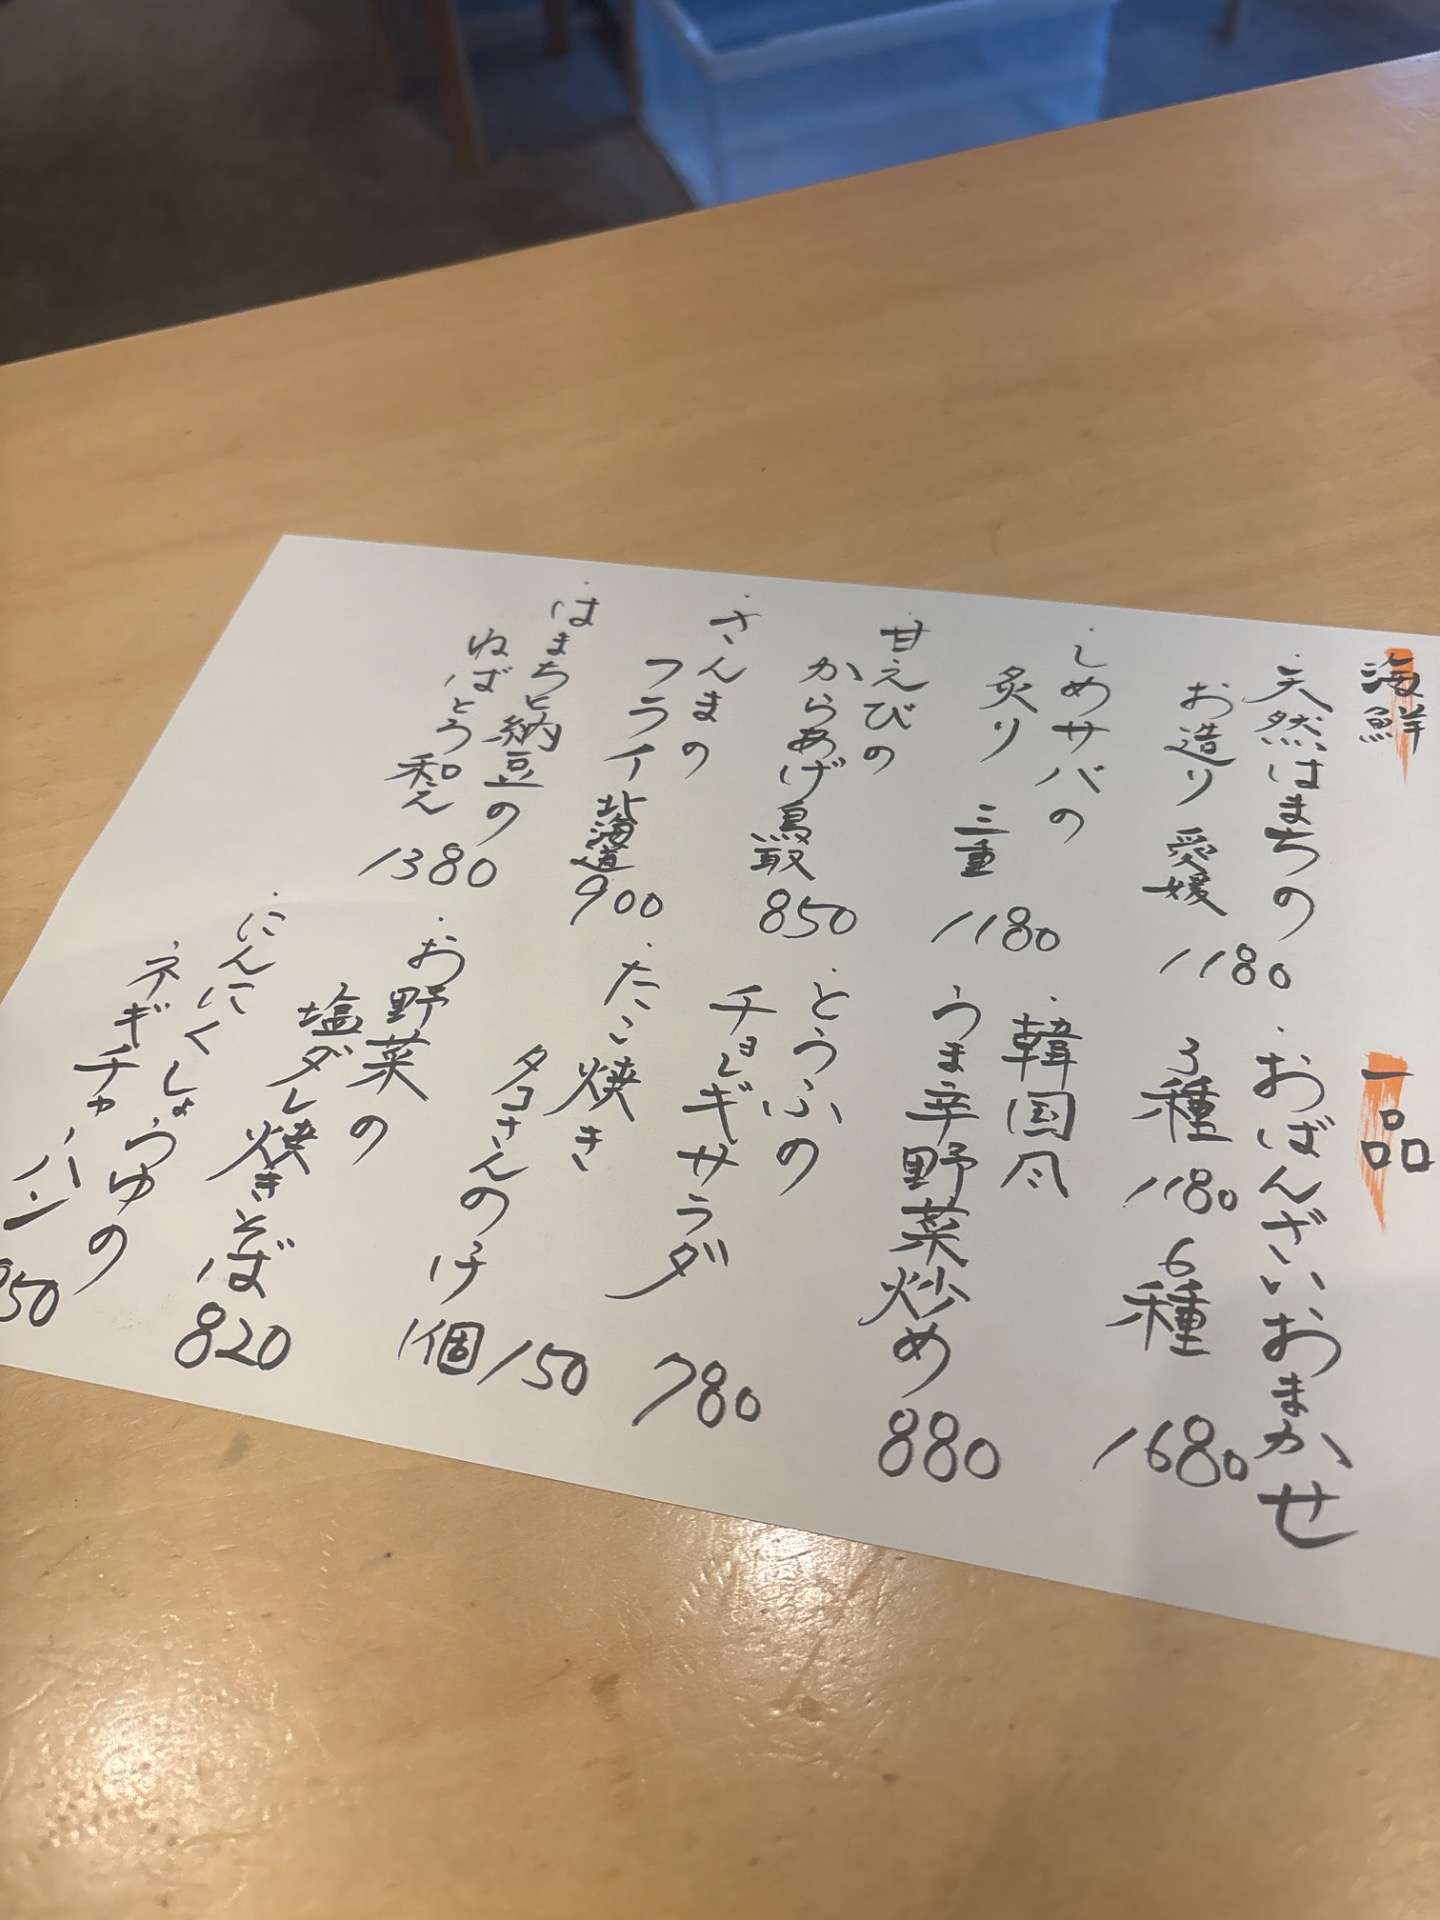 海鮮
・天然はまちの
お造り 愛媛 1180
・しめサバの
炙り 三重 1180
・甘えびの
からあげ 鳥取 850
・さんまの
フライ 北海道 900
・はまちと納豆の
ねばとう和え 1380
一品
・おばんざいおまかせ
3種 1180 6種 1680
・韓国風
うま辛野菜炒め 880
・とうふの
チョレギサラダ 780
・たこ焼き
タコさんの子 1個 150
・お野菜の
塩ダレ焼きそば 820
・にんにくしょうゆの
ネギチャーハン 950